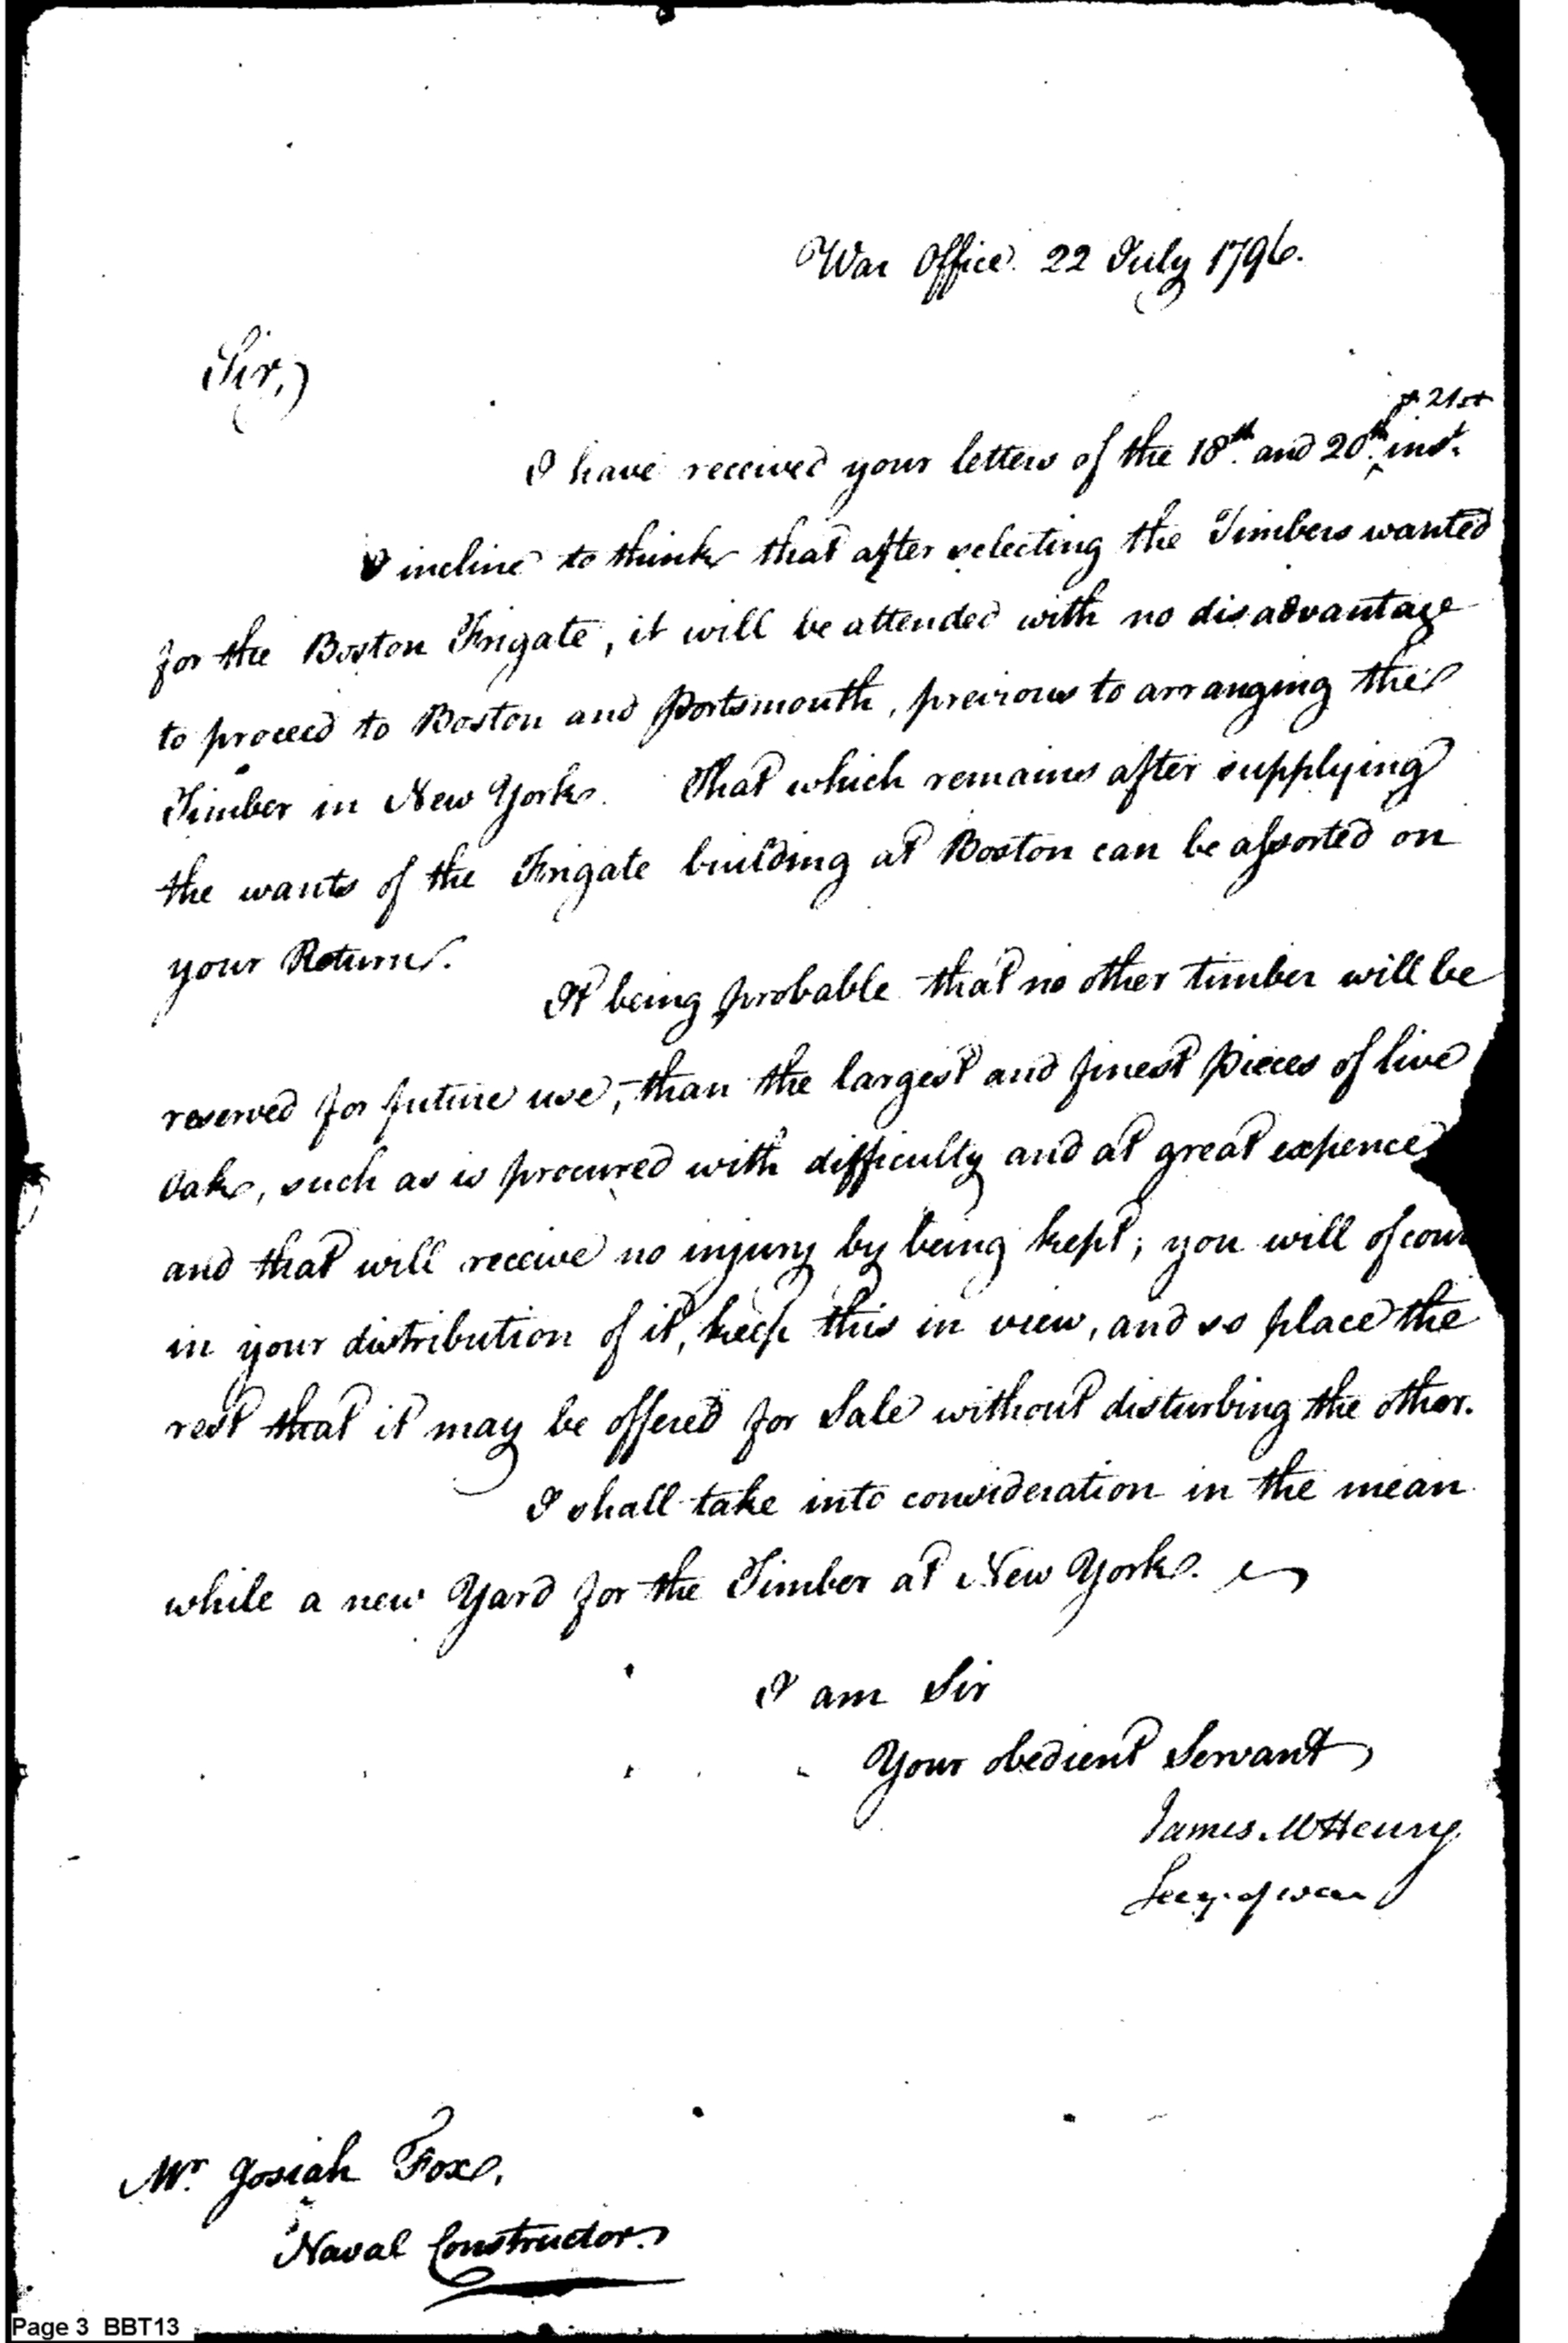 War Office 22 July 1796.
Sir,
& 21st
I have received your letters of the 18th. and 20th. ^ inst.
I incline to think that after selecting the Timbers wanted
for the Boston Frigate, it will be attended with no disadvantage
to proceed to Boston and Portsmouth, previous to arranging the
Timber in New York. That which remains after supplying
the wants of the Frigate building at Boston can be assorted on
your Return.
It being probable that no other timber will be
reserved for future use, than the largest and finest pieces of live
Oak, such as is procured with difficulty and at great expence
and that will receive no injury by being kept; you will of cour
in your distribution of it, keep this in view, and so place the
rest that it may be offered for Sale without disturbing the other.
I shall take into consideration in the mean
while a new Yard for the Timber at New York.
I am Sir
Your obedient Servant
James McHenry
Secy. of war
Mr. Josiah Fox,
Naval Constructor.
Page 3 BBT13